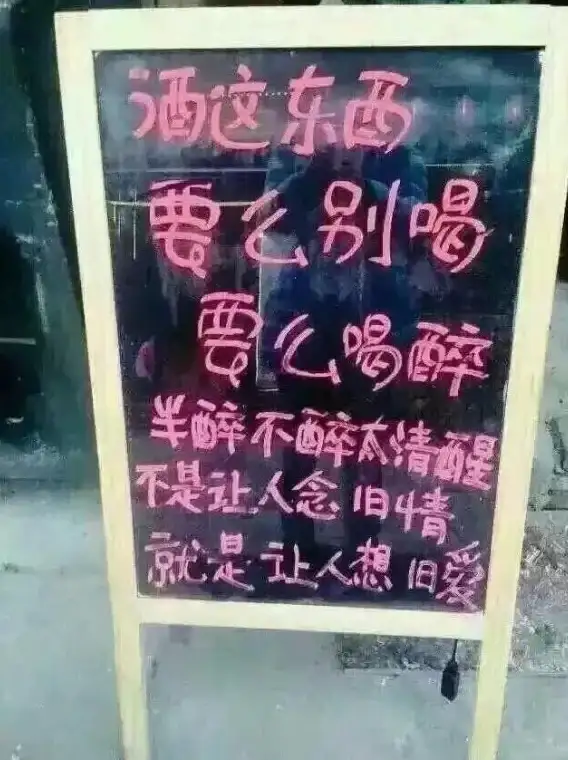 酒这东西
要么别喝
要么喝醉
半醉不醉太清醒
不是让人念旧情
就是让人想旧爱